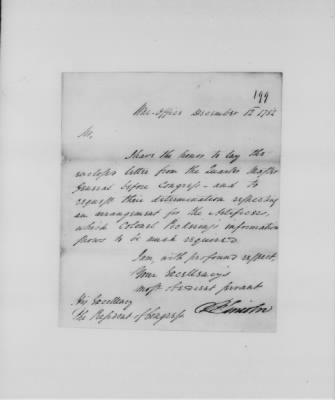 199
War-Office December 12 1782
Sir,
I have the honor to lay the
enclosed letter from the Quarter Master
General before Congress - and to
request their determination respecting
an arrangement for the Artificers,
which Colonel Pickering's information
shows to be much required.
I am, with profound respect
Your Excellency's
most obedient servant
B Lincoln
His Excellency
The President of Congress